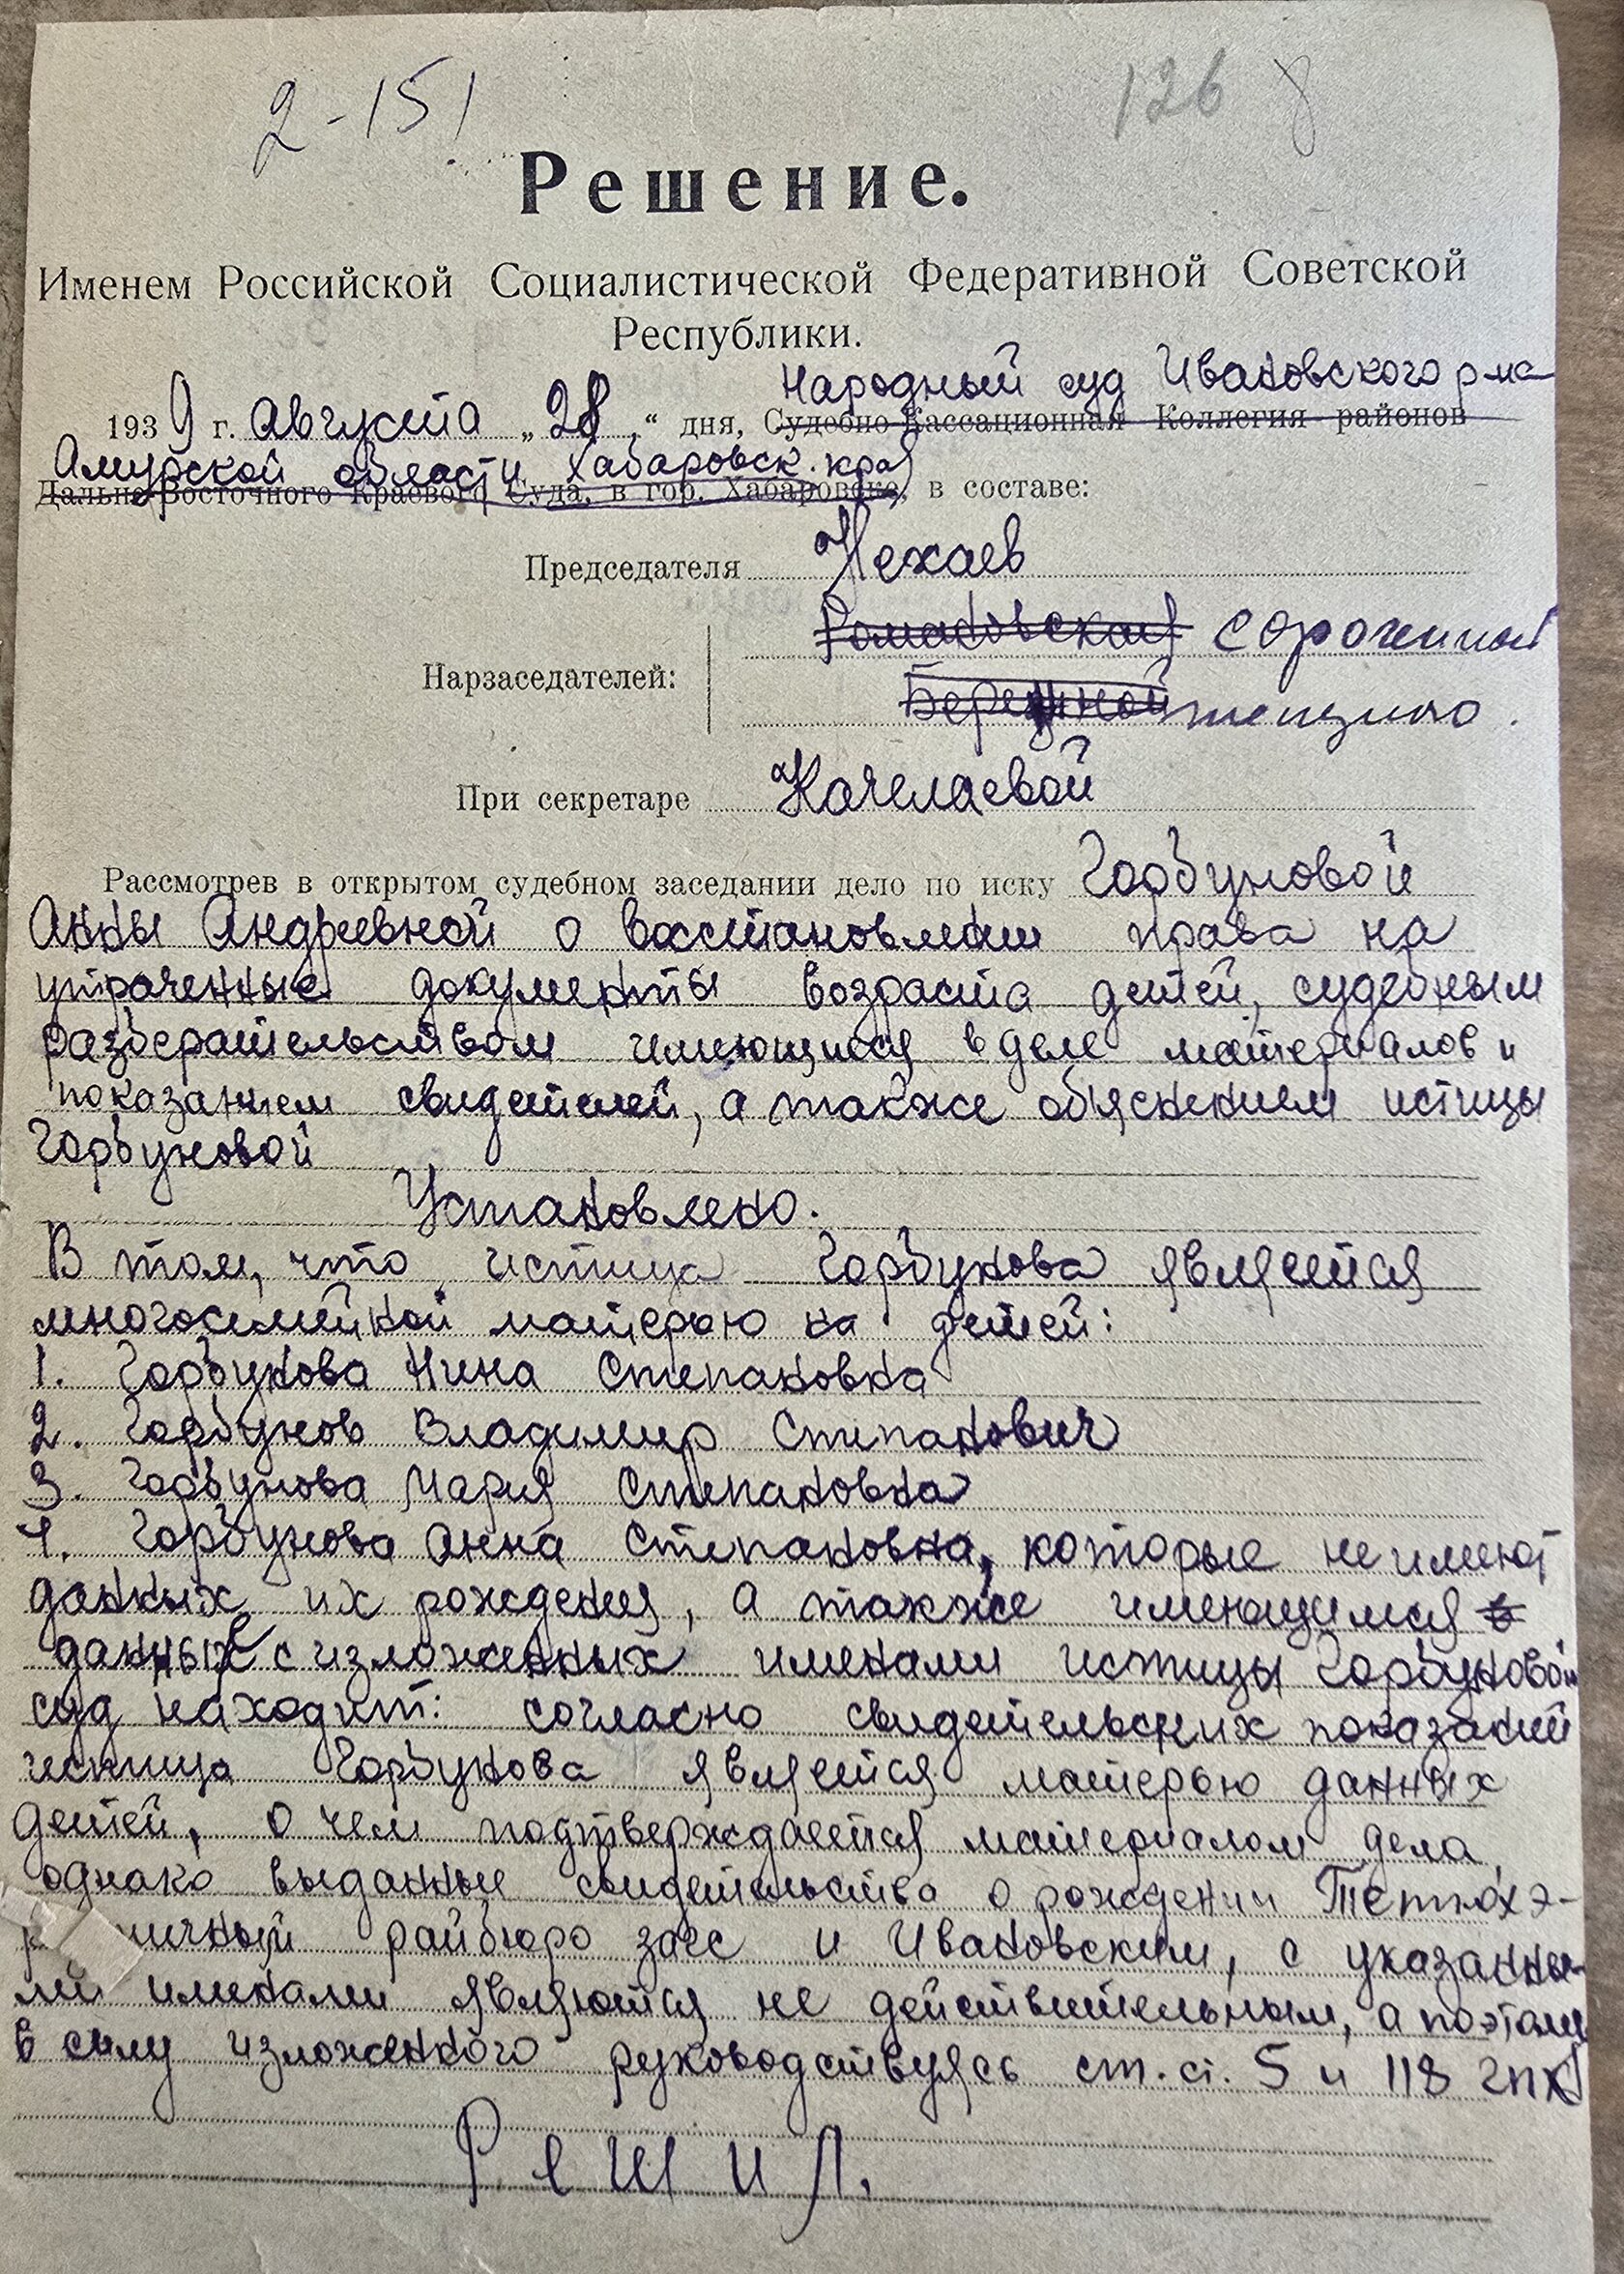 2-151
126 8
Решение.
Именем Российской Социалистической Федеративной Советской
Республики.
Народный суд Ивановского р-на
1939 г. Августа „28“ дня, Судебно-Кассационная Коллегия районов
Амурской области Хабаровск. края
Дальне-Восточного Краевого Суда, в гор. Хабаровске, в составе:
Председателя Нехаев
Романовская Сорочиной
Нарзаседателей:
Бережной
При секретаре Качелаевой
Рассмотрев в открытом судебном заседании дело по иску Горбуновой
Анны Андреевной о восстановлении права на
утраченные документы возраста детей, судебным
разберательством имеющиеся в деле материалов и
показанием свидетелей, а также обяснением истицы
Горбуновой
Установлено.
В том, что истица Горбунова является
многосемейной матерью на детей:
1. Горбунова Нина Степановна
2. Горбунов Владимир Степанович
3. Горбунова Мария Степановна
4. Горбунова Анна Степановна, которые не имеют
данных их рождения, а также имеющимся в
данных с изложенных именами истицы Горбуновой
суд находит: согласно свидетельских показаний
истица Горбунова является матерью данных
детей, о чем подтверждается материалом дела,
однако выданные свидетельства о рождении Тетюхэ-
райбюро загс и Ивановским, с указанны-
ми именами являются не действительным, а поэтому
в силу изложенного руководствуясь ст.ст. 5 и 118 гпк
Решил.